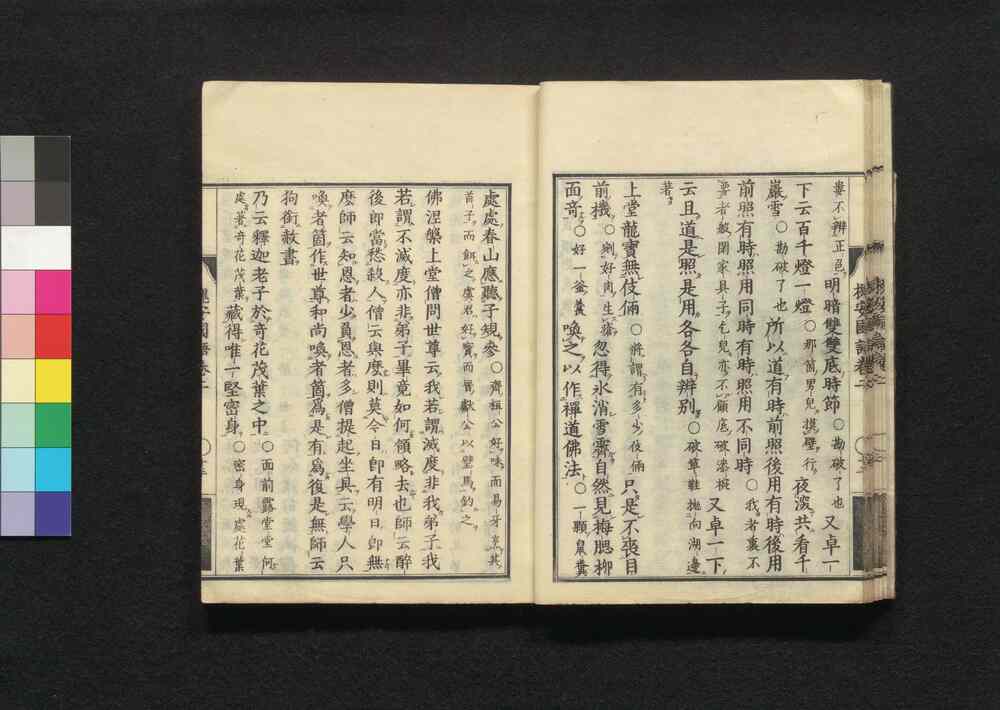 婁不辨正色明暗雙雙底時節〇勘破了也又卓一
下云百千燈一燈〇那箇男兒摸壁行夜深共看千
巖雪〇勘破了也所以道有時前照後用有時後用
前照有時照用同時有時照用不同時〇我者裏不
要者般閑家具子乞兒亦不顧底破漆椀又卓一下
云且道是照是用各各自辨別〇破草鞋抛向湖邊
著
上堂龍寶無伎倆〇將謂有多少伎倆只是不喪目
前機〇剜好肉生瘡忽得氷消雪霽自然見梅腮柳
面奇〇好一釜羹喚之以作禪道佛法〇一顆鼠糞
處處春山應聽子規參〇齊桓公好味而易牙烹其
首子而餌之虞君好寶而晉獻公以璧馬釣之
佛涅槃上堂僧問世尊云我若謂滅度非我弟子我
若謂不滅度亦非弟子畢竟如何領略去也師云醉
後郎當愁殺人僧云與麼則莫今日即有明日即無
麼師云知恩者少負恩者多僧提起坐具云學人只
喚者箇作世尊和尚喚者箇爲是有爲復是無師云
狗銜赦書
乃云釋迦老子於奇花茂葉之中〇面前露堂堂何
處著奇花茂葉藏得唯一堅密身〇密身現處花葉